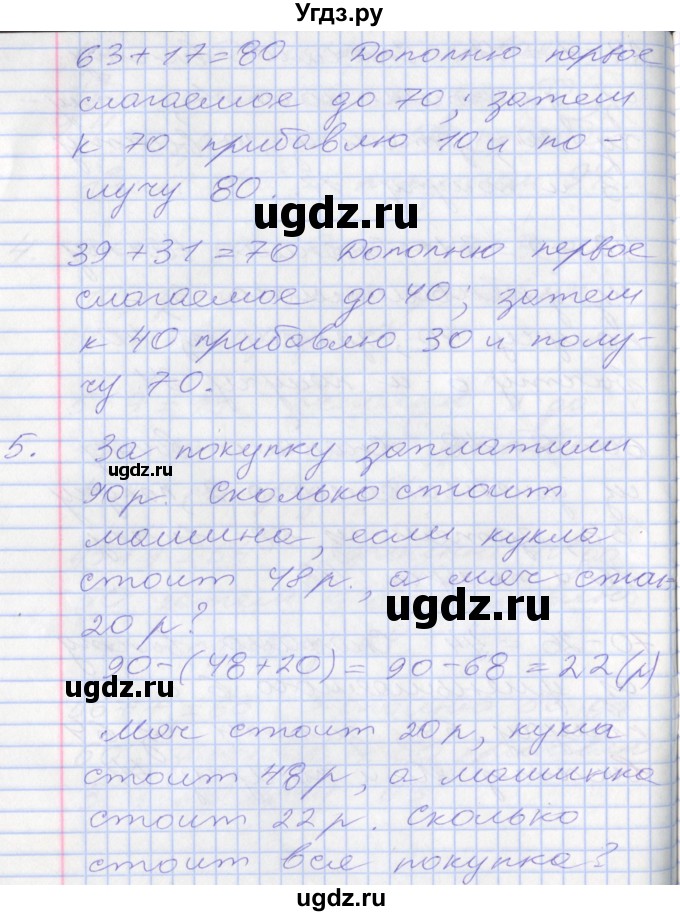 Угдз.ру
63+17=80 Дополню первое
слагаемое до 70; затем
к 70 прибавлю 10 и по-
лучу 80.
ugdz.ru
39+31=70 Дополню первое
слагаемое до 40; затем
к 40 прибавлю 30 и полу-
чу 70.
5. За покупку заплатили
ugdz.ru
90р. Сколько стоит
машина, если кукла
стоит 48р., а мяч стои-
ugdz.ru
20 р?
90-(48+20)=90-68=22(р)
ugdz.ru
Мяч стоит 20р, кукла
стоит 48р, а машинка
стоит 22р. Сколько
стоит вся покупка?
ugdz.ru